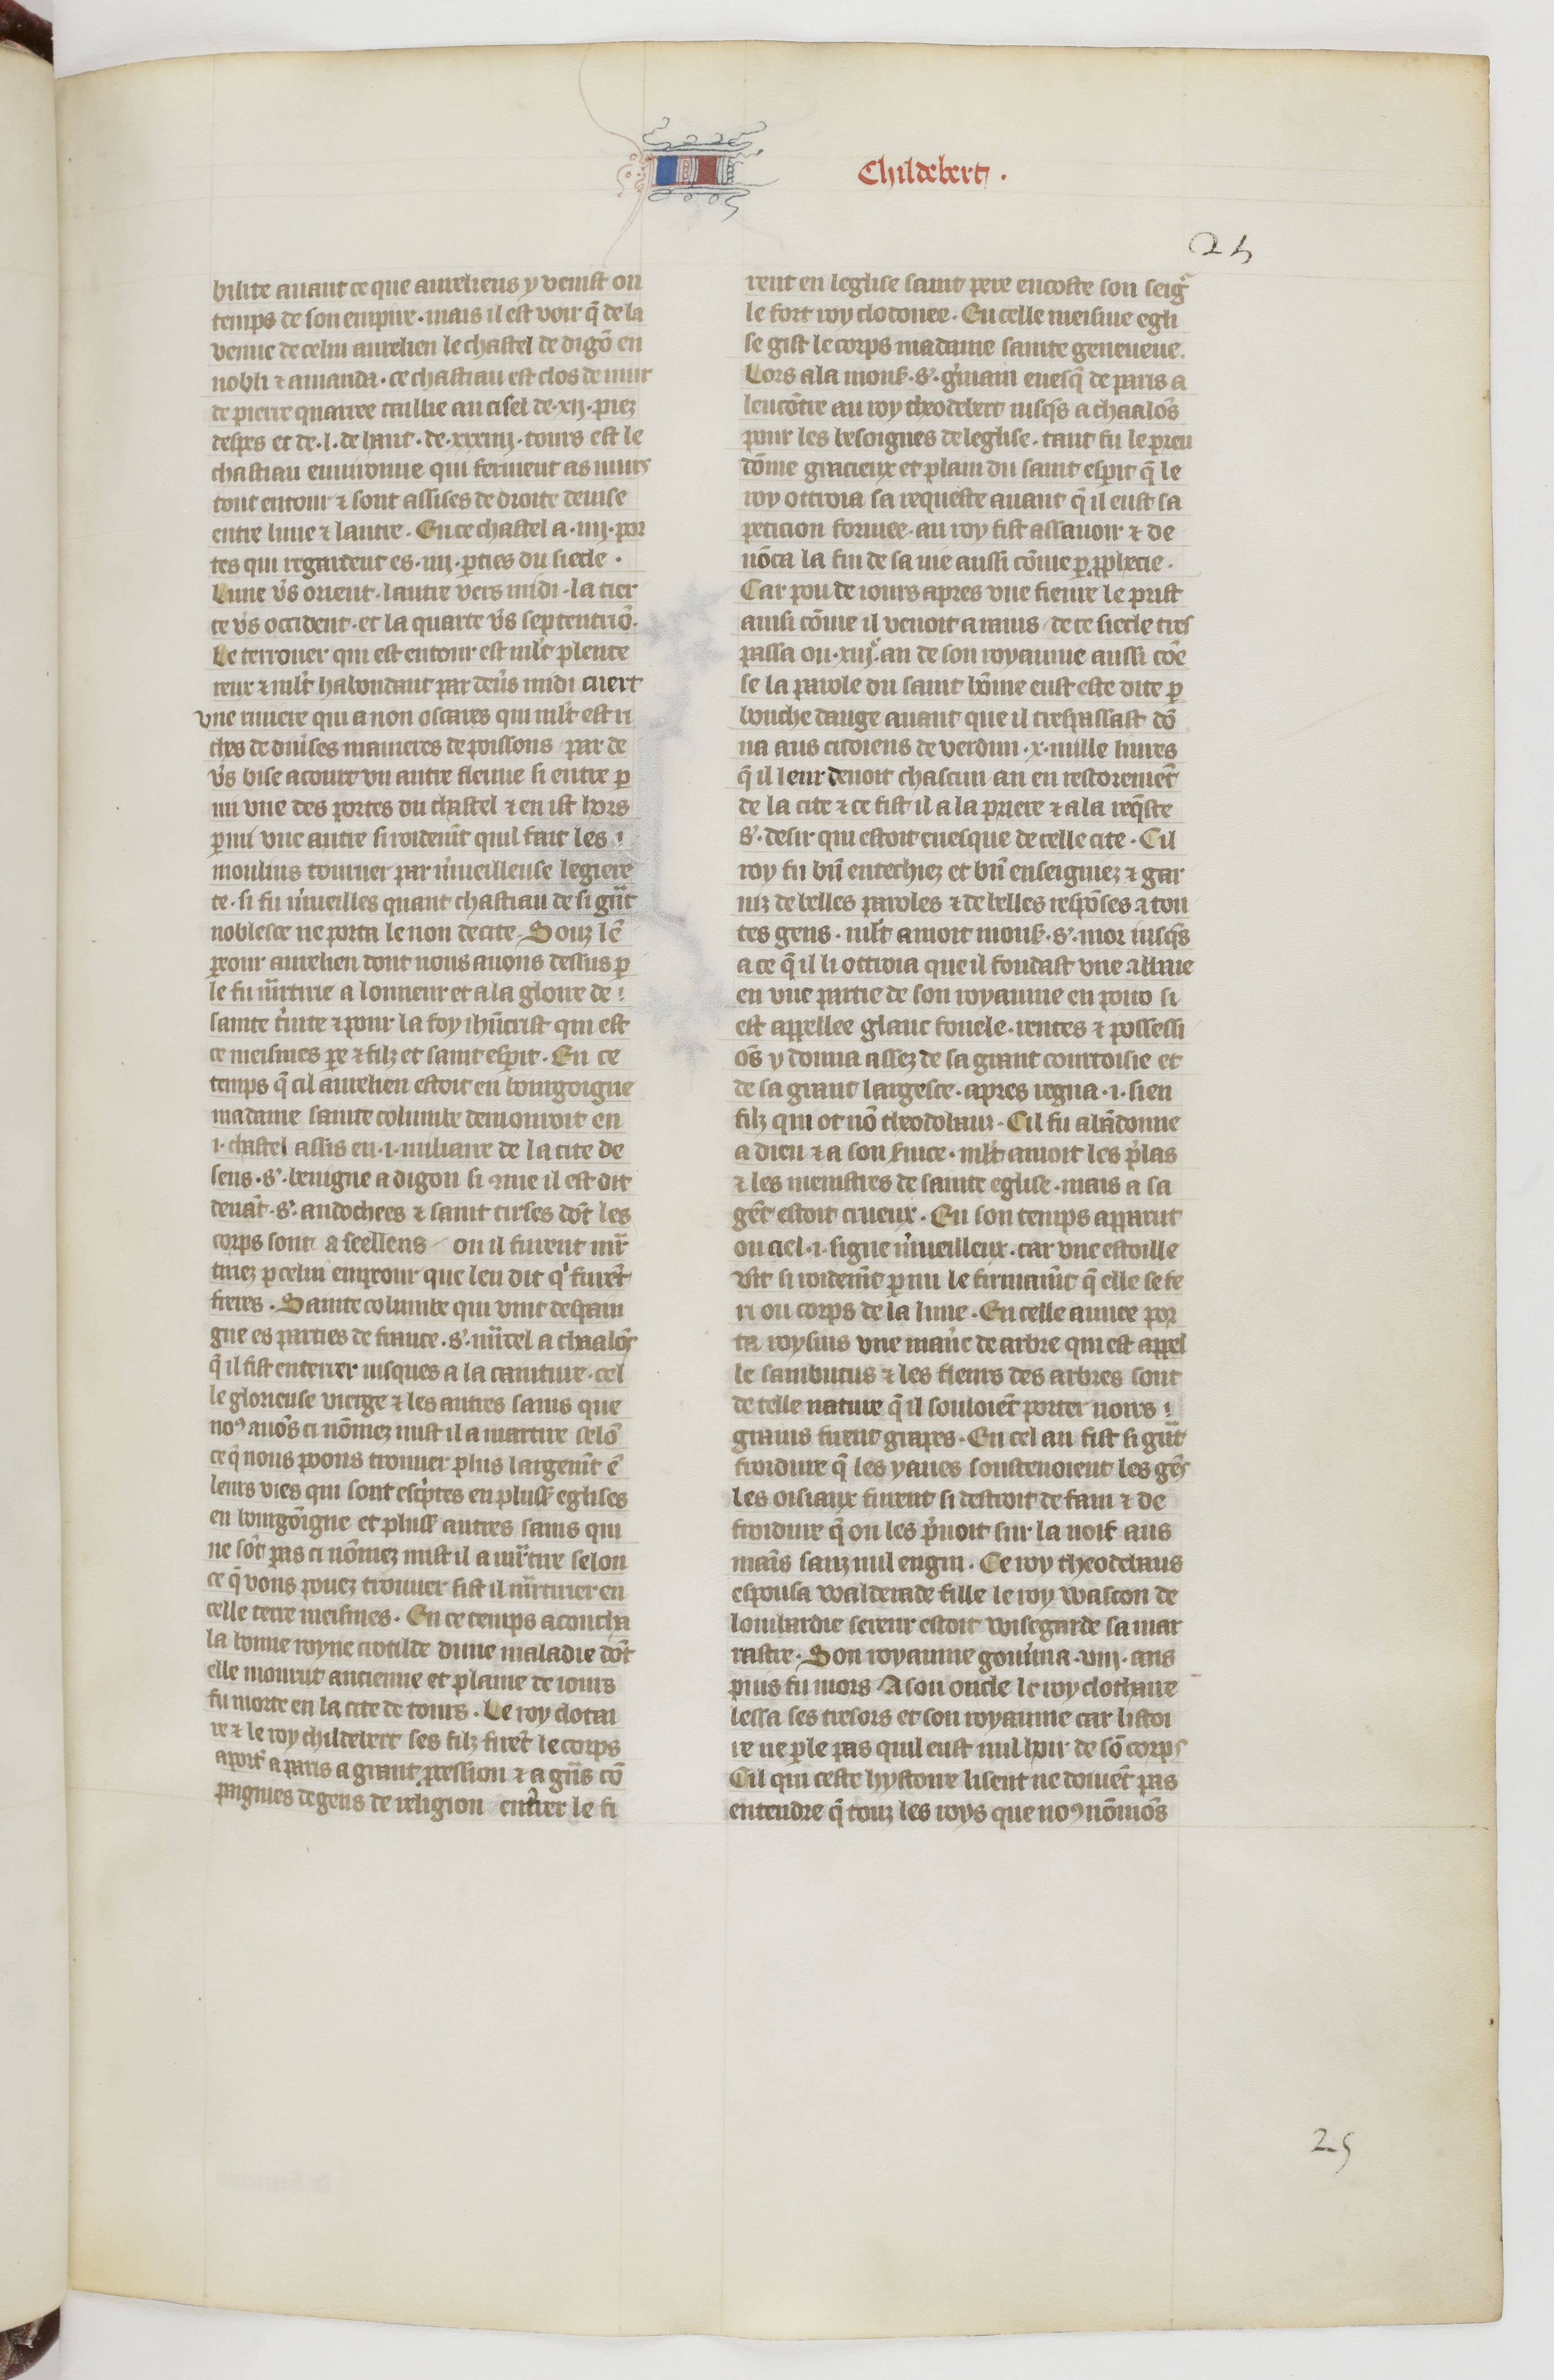 II Childebert.
25
bilite auant ce que aureliens y venist ou
temps de son empire · mais il est voir q̃ de la
venue de celui aurelien le chastel de digõ en
nobli ⁊ amanda · ce chastiau est clos de mur
de pierre quarree taillie au cisel de · xij · piez
despes et de · l · de haut · de · xxxiiij · tours est le
chastiau enuironne qui ferment as murs
tout entour ⁊ sont assises de droite deuise
entre lune ⁊ lautre · En ce chastel a · iiij · por
tes qui regardent es · iiij · ꝑties du siecle ·
Lune v̾s orient · lautre vers midi · la tier
ce v̾s occident · et la quarte v̾s septentriõ ·
Le terrouer qui est entour est ml̃t plente
reux ⁊ ml̃t habondant par deu̾s midi cuert
vne riuiere qui a non oscares qui ml̃t est ri
ches de diu̾ses manieres de poissons / par de
v̾s bise acourt vn autre fleuue si entre ꝑ
mi vne des portes du chastel ⁊ en ist hors
ꝑmi vne autre si roidem̃t quil fait les
moulins tourner par m̾ueilleuse legiere
te · si fu m̾ueilles quant chastiau de si gñt
noblesce ne porta le non de cite · Souz lẽ
ꝑeour aurelien dont nous auons dessus ꝑ
le fu mr̃tirie a lonneur et a la gloire de
sainte t̾nite ⁊ pour la foy ih̃ucrist qui est
ce meismes ꝑe ⁊ filz et saint esprit · En ce
temps q̃ cil aurelien estoit en bourgoigne
madame sainte columbe demouroit en
· i · chastel assis en · i · miliaire de la cite de
sens · s̾ · benigne a digon si 9me il est dit
deuãt · s̾ · andochees ⁊ saint tirses dõt les
corps sont a seellens / ou il furent mr̃
tiriez ꝑ celui empeour que leu dit q̾ furẽt
freres · Sainte columbe qui vint despain
gne es parties de france · s̾ · mr̃cel a chaalõs
q̃ il fist enterrer iusques a la cainture · cel
le glorieuse vierge ⁊ les autres sains que
no9 auõs ci nõmez mist il a martire selõ
ce q̃ nous poons trouuer plus largem̃t ẽ
leurs vies qui sont esc̾ptes en plus̃ eglises
en bourgõigne et plus̃ autres sains qui
ne sõt pas ci nõmez mist il a mr̃tire selon
ce q̃ vons pouez trouuer fist il mr̃tirier en
celle terre meismes · En ce temps acoucha
la bonne royne crotilde dune maladie dõt
elle mourut ancienne et plaine de iours
fu morte en la cite de tours · Le roy clotai
re ⁊ le roy childebert ses filz firẽt le corps
aport̾ a paris a grant ꝓcession ⁊ a gñs cõ
paignies de gens de religion ent̾rer le fi
rent en leglise saint pere encoste son seig̾
le fort roy clodouee · En celle meisme egli
se gist le corps madame sainte geneueue ·
Lors ala mons̃ · s̾ · g̾main euesq̃ de paris a
lencõtre au roy theodebert iusq̃s a chaalõs
pour les besoignes de leglise · tant fu le preu
dõme gracieux et plain du saint esprit q̃ le
roy ottroia sa requeste auant q̃ il eust sa
peticion formee · au roy fist assauoir ⁊ de
nõca la fin de sa vie aussi cõme ꝑ ꝓphecie ·
Car pou de iours apres vne fieure le prist
ainsi cõme il venoit a rains / de ce siecle tres
passa ou · xiijᵉ · an de son royaume aussi cõe
se la parole du saint hõme eust este dite ꝑ
bouche dange auant que il trespassast dõ
na aus citoiens de verdun · x · mille liures
q̃ il leur deuoit chascun an en restoremẽt
de la cite ⁊ ce fist il a la priere ⁊ a la req̃ste
s̾ · desir qui estoit euesque de celle cite · Cil
roy fu bñ entechiez et bñ enseigniez ⁊ gar
niz de belles paroles ⁊ de belles respõses a tou
tes gens · ml̃t amoit mons̃ · s̾ · mor iusq̃s
a ce q̃ il li ottroia que il fondast vne abbaie
en vne partie de son royaume en poito si
est appellee glanc fouele · rentes ⁊ possessi
õs y donna assez de sa grant courtoisie et
de sa grant largesce · apres regna · i · sien
filz qui ot nõ theodobauz · Cil fu abãdonne
a dieu ⁊ a son s̾uice · ml̃t amoit les p̾las
⁊ les menistres de sainte eglise · mais a sa
gẽt estoit crueux · En son temps apparut
ou ciel · i · signe m̾ueilleux · car vne estoille
vīt si roidem̃t ꝑmi le firmam̃t q̃ elle se fe
ri ou corps de la lune · En celle annee por
ta roysins vne mañe de arbre qui est appel
le sambucus ⁊ les fleurs des arbres sont
de telle nature q̃ il souloiẽt porter noirs
grains furent grapes · En cel an fist si gñt
froidure q̃ les yaues soustenoient les gẽs
les oisiaux furent si destroit de fain ⁊ de
froidure q̃ on les p̾noit sur la noif aus
mais sanz nul engin · Ce roy theodebaus
espousa walderade fille le roy wascon de
lombardie sereur estoit wisegarde sa mar
rastre · Son royaume gouu̾na · viij · ans
puis fu mors A son oncle le roy clothaire
lessa ses tresors et son royaume car listoi
re ne ꝑle pas quil eust nul hoir de sõ corps
Cil qui ceste hystoire lisent ne doiuẽt pas
entendre q̃ touz les roys que no9 nõmõs
25